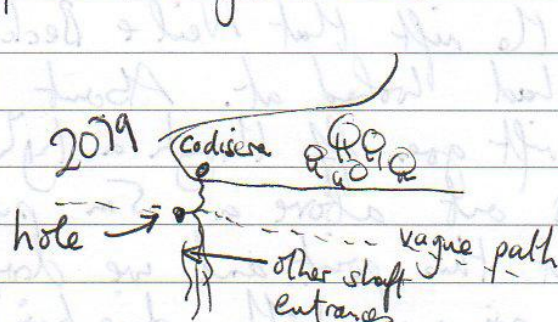 2079
codisera
hole
vague path
other shaft
entrances